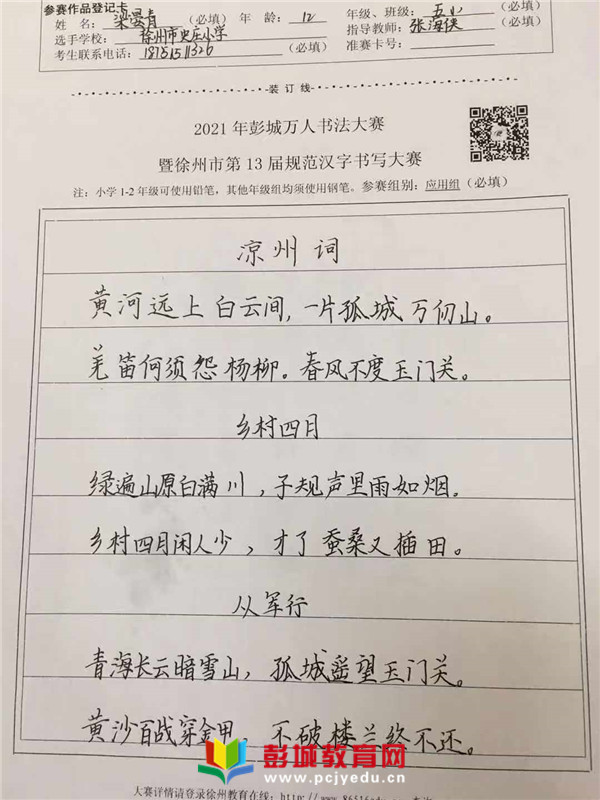 参赛作品登记卡
姓 名：梁晏青（必填） 年 龄：12 年级、班级：五（必填）
选手学校：徐州市史庄小学（必填） 指导教师：张海侠（必填）
考生联系电话：（必填） 准赛卡号：
装 订 线
2021 年彭城万人书法大赛
暨徐州市第 13 届规范汉字书写大赛
注：小学 1-2 年级可使用铅笔，其他年级组均须使用钢笔。参赛组别：应用组（必填）
凉州词
黄河远上白云间，一片孤城万仞山。
羌笛何须怨杨柳。春风不度玉门关。
乡村四月
绿遍山原白满川，子规声里雨如烟。
乡村四月闲人少，才了蚕桑又插田。
从军行
青海长云暗雪山，孤城遥望玉门关。
黄沙百战穿金甲，不破楼兰终不还。
彭城教育网
www.pcjyedu.cn
大赛详情请登录徐州教育在线：